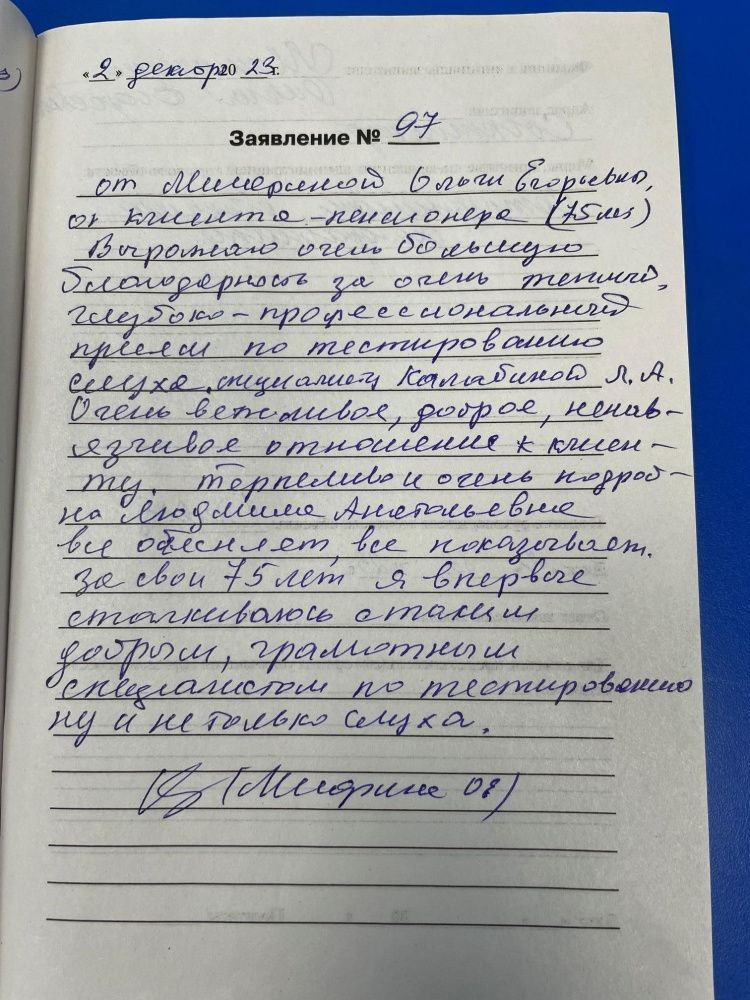 «2» декабр 2023г.
Заявление № 97
от Ольги Егоровны,
от клиента-пенсионера (75 лет)
Выражаю очень большую
благодарность за очень теплый,
глубоко-профессиональный
прием по тестированию
слуха специалисту Калабиной Л.А.
Очень вежливое, доброе, ненав-
язчивое отношение к клиен-
ту. Терпеливо и очень подроб-
на Людмила Анатольевна
все объесняет, все показывает.
За свои 75 лет я впервые
сталкиваюсь с таким
добрым, грамотным
специалистом по тестированию
ну и не только слуха.